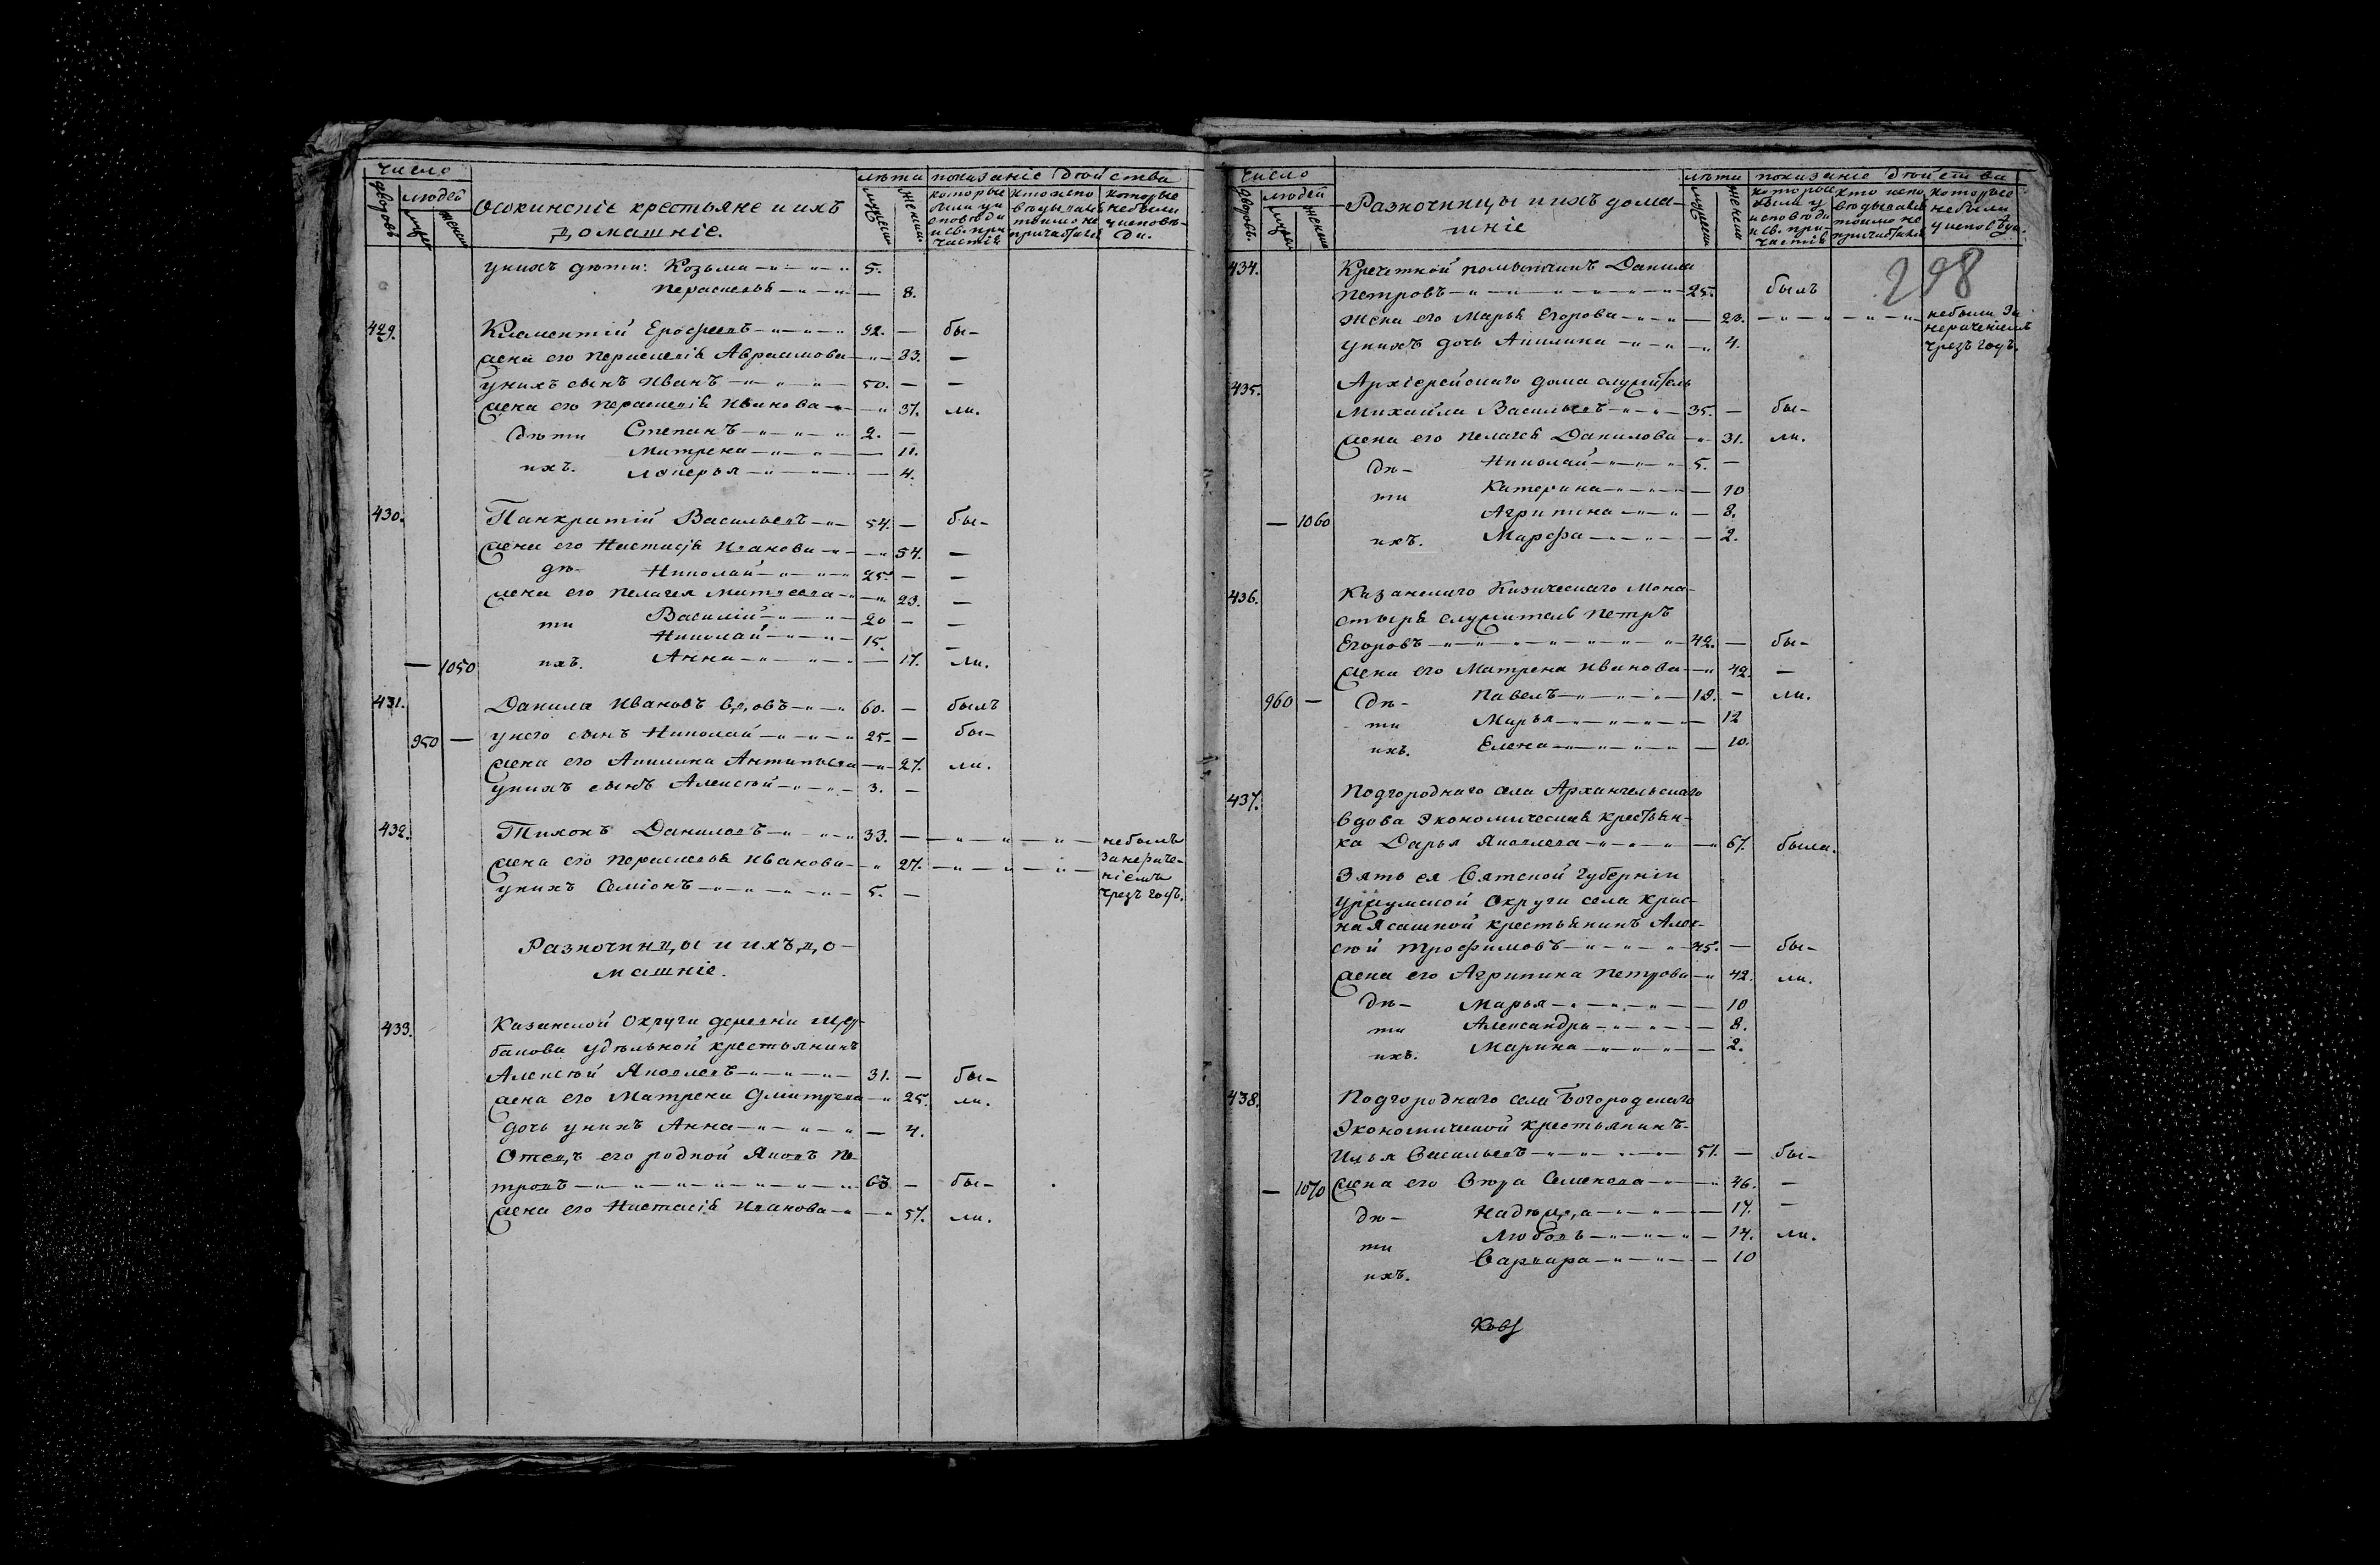 число
людей
дворовъ
муж
женск
Осокинскіе крестьяне и ихъ
домашніе.
лѣта
мужеск
женск
показаніе действа
которые были у исповѣди и св. причастія
кто исповѣдывались токмо не причастился
которые небыли у исповѣди.
у нихъ дѣти: Козьма 5.
Пераскевья — 8.
429. Климентій Ерофеевъ 92. — бы-
жена его Пераскевія Авраамова 33. —
у нихъ сынъ Иванъ 50. — —
жена его Пераскевія Иванова 37. ли.
дѣти Степанъ 2. —
Матрена — 11.
ихъ. Лукерья — 4.
430. Панкратій Васильевъ 54. — бы-
жена его Настасія Иванова 54. —
дѣ- Николай 25. — —
жена его Пелагея Матвеева 23. —
ти Василій 20 — —
Николай 15. —
— 1050 ихъ. Анна — 17. ли.
431. Данила Ивановъ вдовъ 60. — былъ
950 — у него сынъ Николай 25. — бы-
жена его Акилина Антипьева 27. ли.
у нихъ сынъ Алексѣй 3. —
432. Тихонъ Даниловъ 33. — небыли
жена его Пераскевья Иванова 27. за нераче-
ніемъ
у нихъ Семіонъ 5. — чрезъ годъ.
Разночинцы и ихъ до-
машніе.
433. Казанской округи деревни Щер-
бакова удѣльной крестьянинъ
Алексѣй Яковлевъ 31. — бы-
жена его Матрена Дмитрева 25. ли.
дочь у нихъ Анна — 4.
Отецъ его родной Яковъ Пе-
тровъ 63 — бы-
жена его Настасія Иванова 57. ли.
число
людей
дворовъ.
муж
женск
Разночинцы и ихъ дома-
шніе
лѣта
мужеск
женск
показаніе действа
которые были у исповѣди и св. причастія
кто исповѣдывался токмо не причастился
которые небыли у исповѣди.
298
434. Кречетной помытчикъ Данила
Петровъ 25. былъ
жена его Марья Егорова — 20. небыли за
нераченіемъ
у нихъ дочь Акилина 4. чрезъ годъ.
435. Архіерейскаго дома служитель
Михайла Васильевъ 35. — бы-
жена его Пелагея Данилова 31. ли.
дѣ- Николай 5. —
ти Катерина — 10
— 1060 Агрипина — 8.
ихъ. Марфа — 2.
436. Казанскаго Кизическаго Мона-
стыря служитель Петръ
Егоровъ 42. — бы-
жена его Матрена Иванова 42. —
960 — дѣ- Павелъ 18. — ли.
ти Марья — 12
ихъ. Елена — 10.
437. Подгороднаго села Архангельскаго
вдова экономическая крестьян-
ка Дарья Яковлева 67. была.
Зять ея Вятской губерніи
Уржумской округи села Крас-
на ясашной крестьянинъ Алек-
сѣй Трофимовъ 45. — бы-
жена его Агрипина Петрова 42. ли.
дѣ- Марья — 10
ти Александра — 8.
ихъ. Марина — 2.
438. Подгороднаго села Богородскаго
экономической крестьянинъ
Илья Васильевъ 51. — бы-
— 1070 жена его Вѣра Семенова 46. —
дѣ- Надежда — 17. —
ти Любовь — 14. ли.
ихъ. Варвара — 10